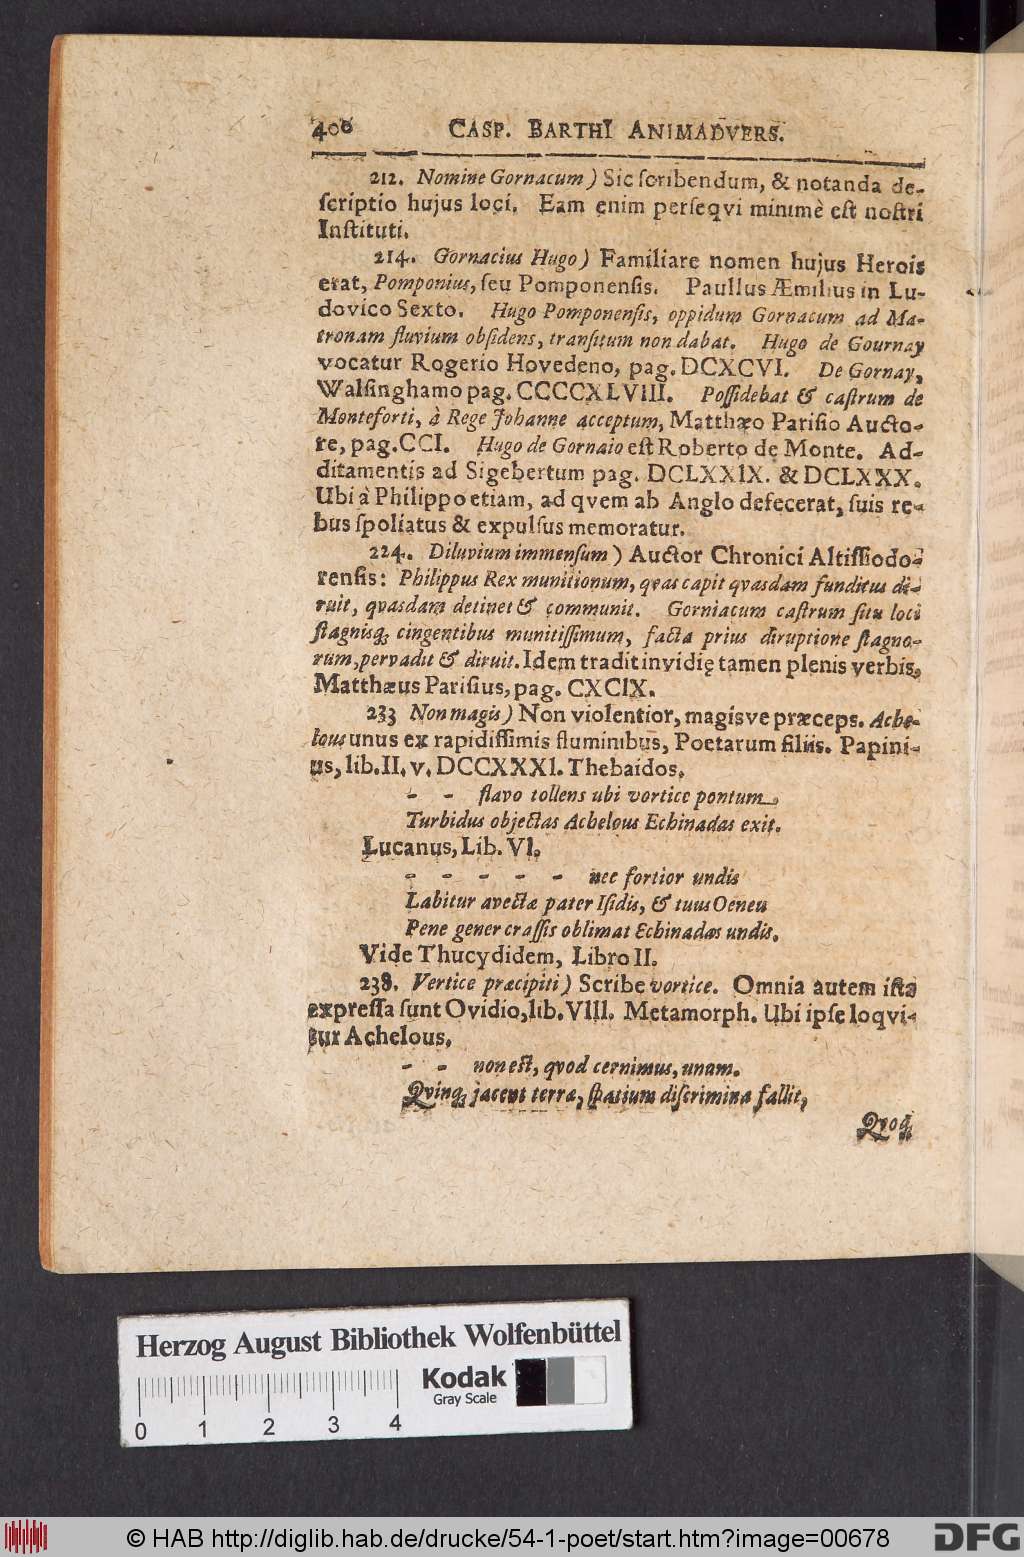 400 CASP. BARTHI ANIMADVERS.
212. Nomine Gornacum) Sic scribendum, & notanda de-
scriptio hujus loci. Eam enim persequi minimè est nostri
Instituti.
214. Gornacius Hugo) Familiare nomen hujus Herois
erat, Pomponius, seu Pomponensis. Paullus Æmilius in Lu-
dovico Sexto. Hugo Pomponensis, oppidum Gornacum ad Ma-
tronam fluvium obsidens, transitum non dabat. Hugo de Gournay
vocatur Rogerio Hovedeno, pag. DCXCVI. De Gornay,
Walsinghamo pag. CCCCXLVIII. Possidebat & castrum de
Monteforti, à Rege Johanne acceptum, Matthæo Parisio Aucto-
re, pag. CCI. Hugo de Gornaio est Roberto de Monte. Ad-
ditamentis ad Sigebertum pag. DCLXXIX. & DCLXXX.
Ubi à Philippo etiam, ad qvem ab Anglo defecerat, suis re-
bus spoliatus & expulsus memoratur.
224. Diluvium immensum) Auctor Chronici Altissiodo-
rensis: Philippus Rex munitionum, qvas capit qvasdam funditus di-
ruit, qvasdam detinet & communit. Gorniacum castrum situ loci
stagnisq; cingentibus munitissimum, facta prius diruptione stagno-
rum, pervadit & diruit. Idem tradit invidię tamen plenis verbis,
Matthæus Parisius, pag. CXCIX.
233 Non magis) Non violentior, magisve præceps. Ache-
lous unus ex rapidissimis fluminibus, Poetarum filiis. Papini-
us, lib. II. v. DCCXXXI. Thebaidos.
- - flavo tollens ubi vortice pontum
Turbidus objectas Achelous Echinadas exit.
Lucanus, Lib. VI.
- - - - - nec fortior undis
Labitur avectæ pater Isidis, & tuus Oeneu
Pene gener crassis oblimat Echinadas undis.
Vide Thucydidem, Libro II.
238. Vertice præcipiti) Scribe vortice. Omnia autem ista
expressa sunt Ovidio, lib. VIII. Metamorph. Ubi ipse loqvi-
tur Achelous.
- - non est, qvod cernimus, unam.
Qvinq; jacent terræ, spatium discrimina fallit,
Qvoq;
Herzog August Bibliothek Wolfenbüttel
Kodak
Gray Scale
0 1 2 3 4
© HAB http://diglib.hab.de/drucke/54-1-poet/start.htm?image=00678
DFG